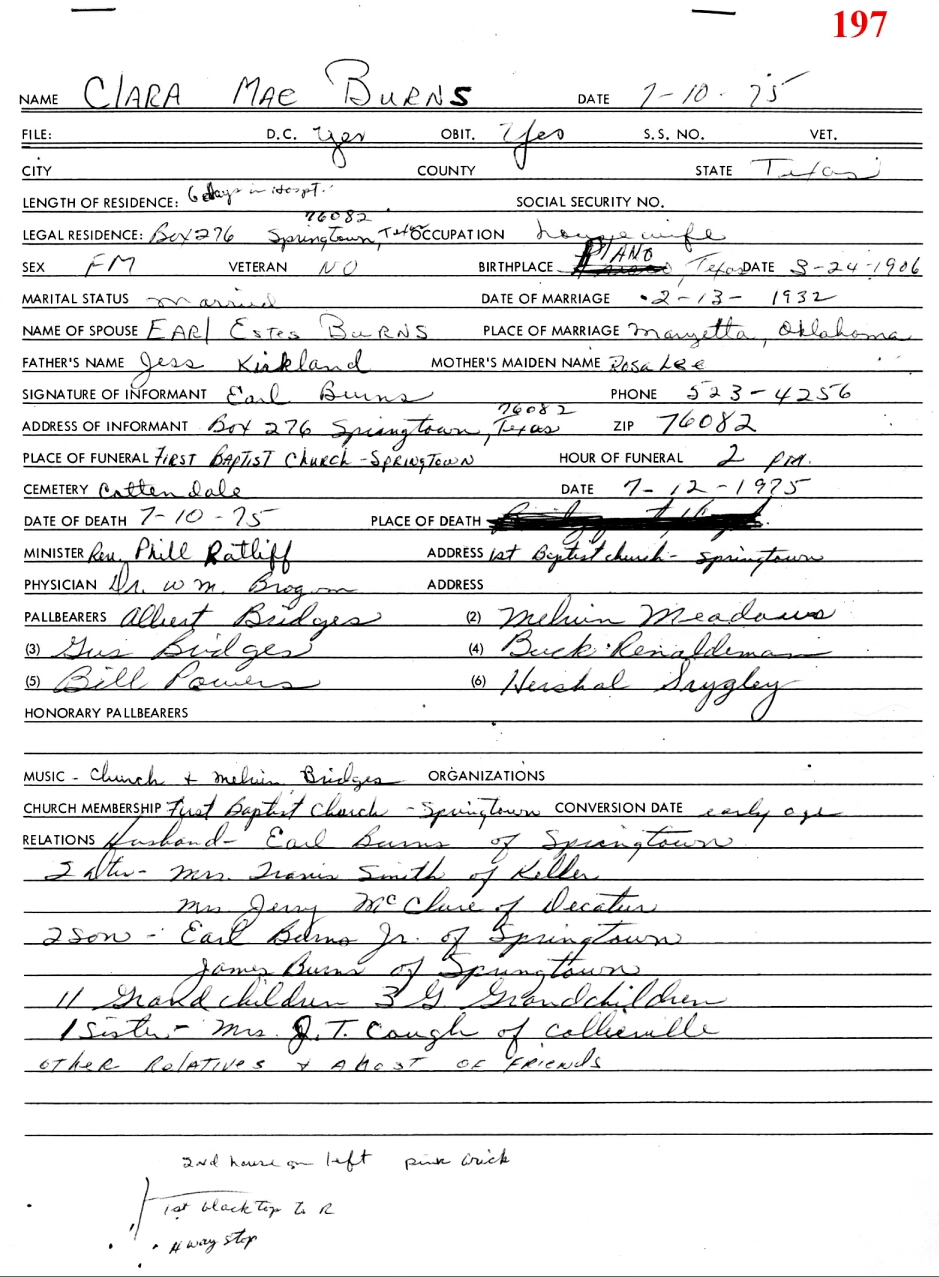 197
NAME CLARA MAE BURNS DATE 7-10-75
FILE: D.C. Yes OBIT. Yes S.S. NO. VET.
CITY COUNTY STATE Texas
LENGTH OF RESIDENCE: 6 days in Hospt. SOCIAL SECURITY NO.
76082
LEGAL RESIDENCE: Box 276 Springtown, Texas OCCUPATION housewife
SEX FM VETERAN NO BIRTHPLACE PLANO, Texas DATE 3-24-1906
MARITAL STATUS married DATE OF MARRIAGE 2-13-1932
NAME OF SPOUSE EARl Estes BURNS PLACE OF MARRIAGE Maryetta, Oklahoma
FATHER'S NAME Jess Kirkland MOTHER'S MAIDEN NAME Rosa Lee
SIGNATURE OF INFORMANT Earl Burns PHONE 523-4256
76082
ADDRESS OF INFORMANT Box 276 Springtown, Texas ZIP 76082
PLACE OF FUNERAL FIRST BAPTIST CHURCH - SPRINGTOWN HOUR OF FUNERAL 2 PM.
CEMETERY Cottendale DATE 7-12-1975
DATE OF DEATH 7-10-75 PLACE OF DEATH
MINISTER Rev. Phill Ratliff ADDRESS 1st Baptist church - Springtown
PHYSICIAN Dr. Wm. Brogan ADDRESS
PALLBEARERS Albert Bridges (2) Melvin Meadows
(3) Gus Bridges (4) Buck Renaldeman
(5) Bill Powers (6) Hershal Srygley
HONORARY PALLBEARERS
MUSIC - Church & Melvin Bridges ORGANIZATIONS
CHURCH MEMBERSHIP First Baptist Church - Springtown CONVERSION DATE early age
RELATIONS Husband - Earl Burns of Springtown
2 dtr - Mrs. Travis Smith of Keller
Mrs Jerry McClure of Decatur
2 Son - Earl Burns Jr. of Springtown
James Burns of Springtown
11 Grandchildren 3 G. Grandchildren
1 Sister - Mrs. J.T. Cough of Collieville
OTHER RELATIVES & A HOST OF FRIENDS
2nd house on left pink brick
1st blacktop to R
4 way stop